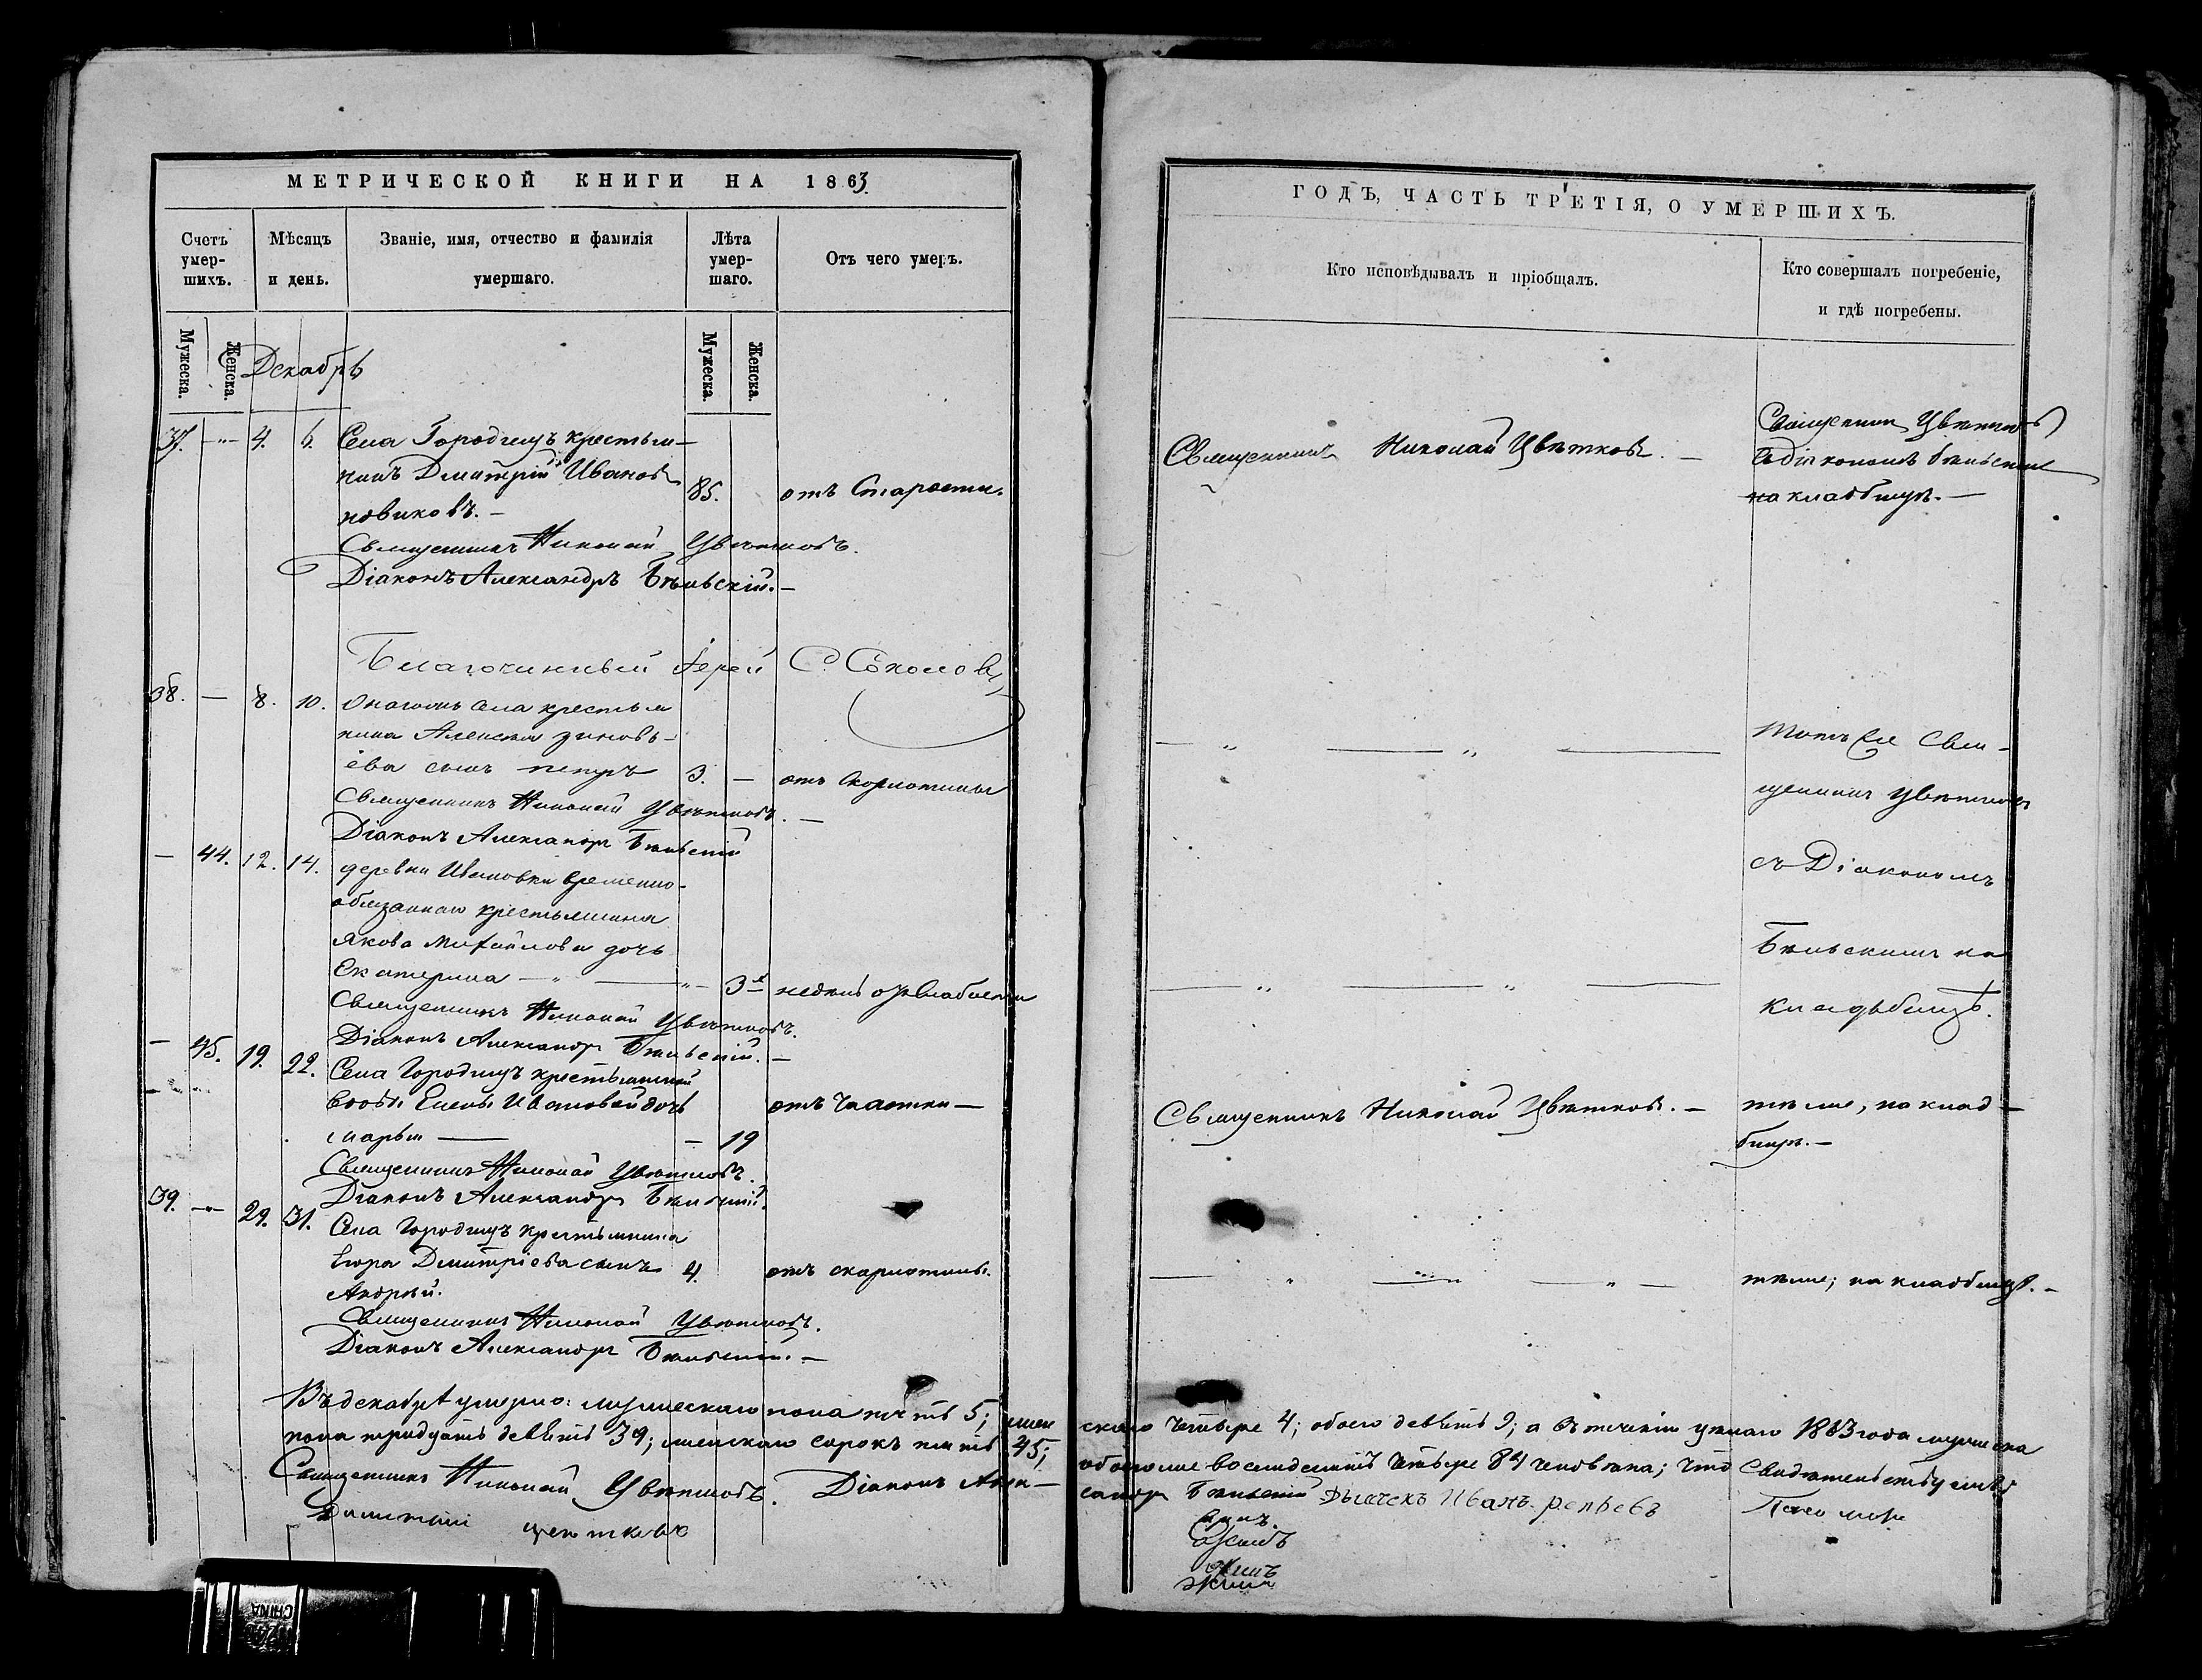 МЕТРИЧЕСКОЙ КНИГИ НА 1863
Счетъ умер- шихъ.
Мѣсяцъ и день.
Званіе, имя, отчество и фамилія умершаго.
Лѣта умер- шаго.
Отъ чего умеръ.
Мужеска.
Женска.
Мужеска.
Женска.
Декабрь
37. -"- 4. 6. Села Городищъ крестья-
нинъ Дмитрій Ивановъ
85. отъ Старости.
новиковъ.-
Священникъ Николай Цвѣтковъ.
Діаконъ Александръ Бѣльскій.-
Благочинный Іерей С. Соколовъ
38. — 8. 10. Онагожъ села крестья
нина Алексѣя зиновь-
ева сынъ петръ 3. — отъ скарлатины
Священникъ Николай Цвѣтковъ. —
Діаконъ Александръ Бѣльскій
— 44. 12. 14. деревни Ивановки временно-
обязаннаго крестьянина
Якова михайлова дочь
Екатерина — " — " — 3х недѣль отъ слабости
Священникъ Николай Цвѣтковъ.
Діаконъ Александръ Бѣльскій. —
— 45. 19. 22. Села Городищъ крестьянской
вдовы Елены Ивановой дочь отъ чахотки —
марья — — 19
Священникъ Николай Цвѣтковъ.
Діаконъ Александръ Бѣльскій.
39. -"- 29. 31. Села Городищъ крестьянина
Егора Дмитріева сынъ 4. отъ скарлатины.
Андрей.
Священникъ Николай Цвѣтковъ.
Діаконъ Александръ Бѣльскій. —
Въ декабрѣ умерло: мужескаго пола пять 5; жен
пола тридцать девять 39; женскаго сорокъ пять 45;
Священникъ Николай Цвѣтковъ. Діаконъ Алек-
ГОДЪ, ЧАСТЬ ТРЕТІЯ, О УМЕРШИХЪ.
Кто исповѣдывалъ и пріобщалъ.
Кто совершалъ погребеніе, и гдѣ погребены.
Священникъ Николай Цвѣтковъ. —
Священникъ Цвѣтковъ
съ діакономъ бѣльскимъ
на кладбищѣ. —
— " — " —
Тотъ же Свя-
щенникъ Цвѣтковъ
съ Діакономъ
Бѣльскимъ на
кладьбищѣ.
— " — " —
Священникъ Николай Цвѣтковъ. — тѣже, на клад-
бищѣ. —
— " — " — " — тѣже, на кладбищѣ. —
скаго четыре 4; обоего девять 9; а въ теченіи цѣлаго 1863 года мужеска
обоего же восемдесятъ четыре 84 человѣка; что свидѣтельствуемъ
сандръ Бѣльскій Дьячекъ Иванъ репьевъ